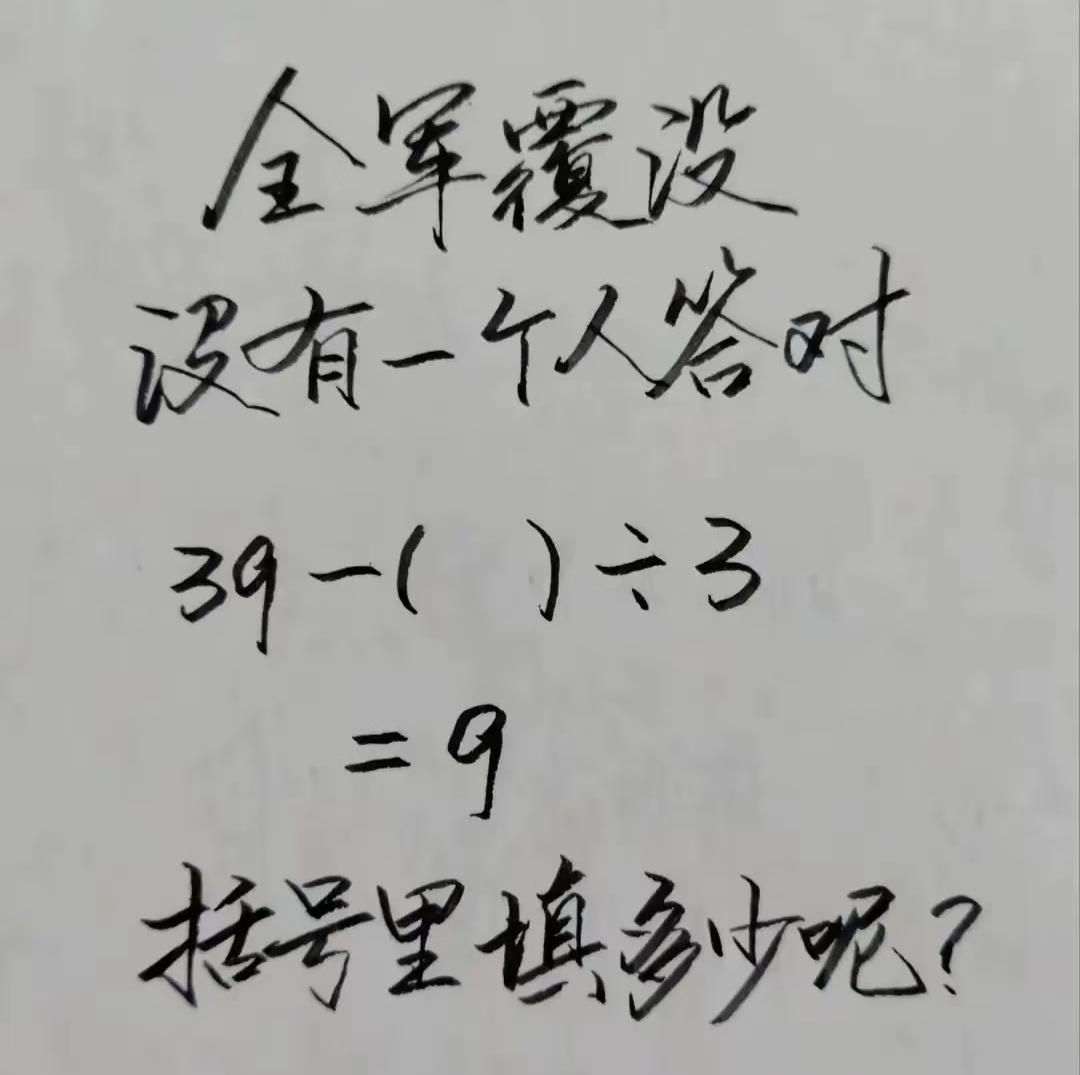 全军覆没
没有一个人答对
39-( )÷3
=9
括号里填多少呢?